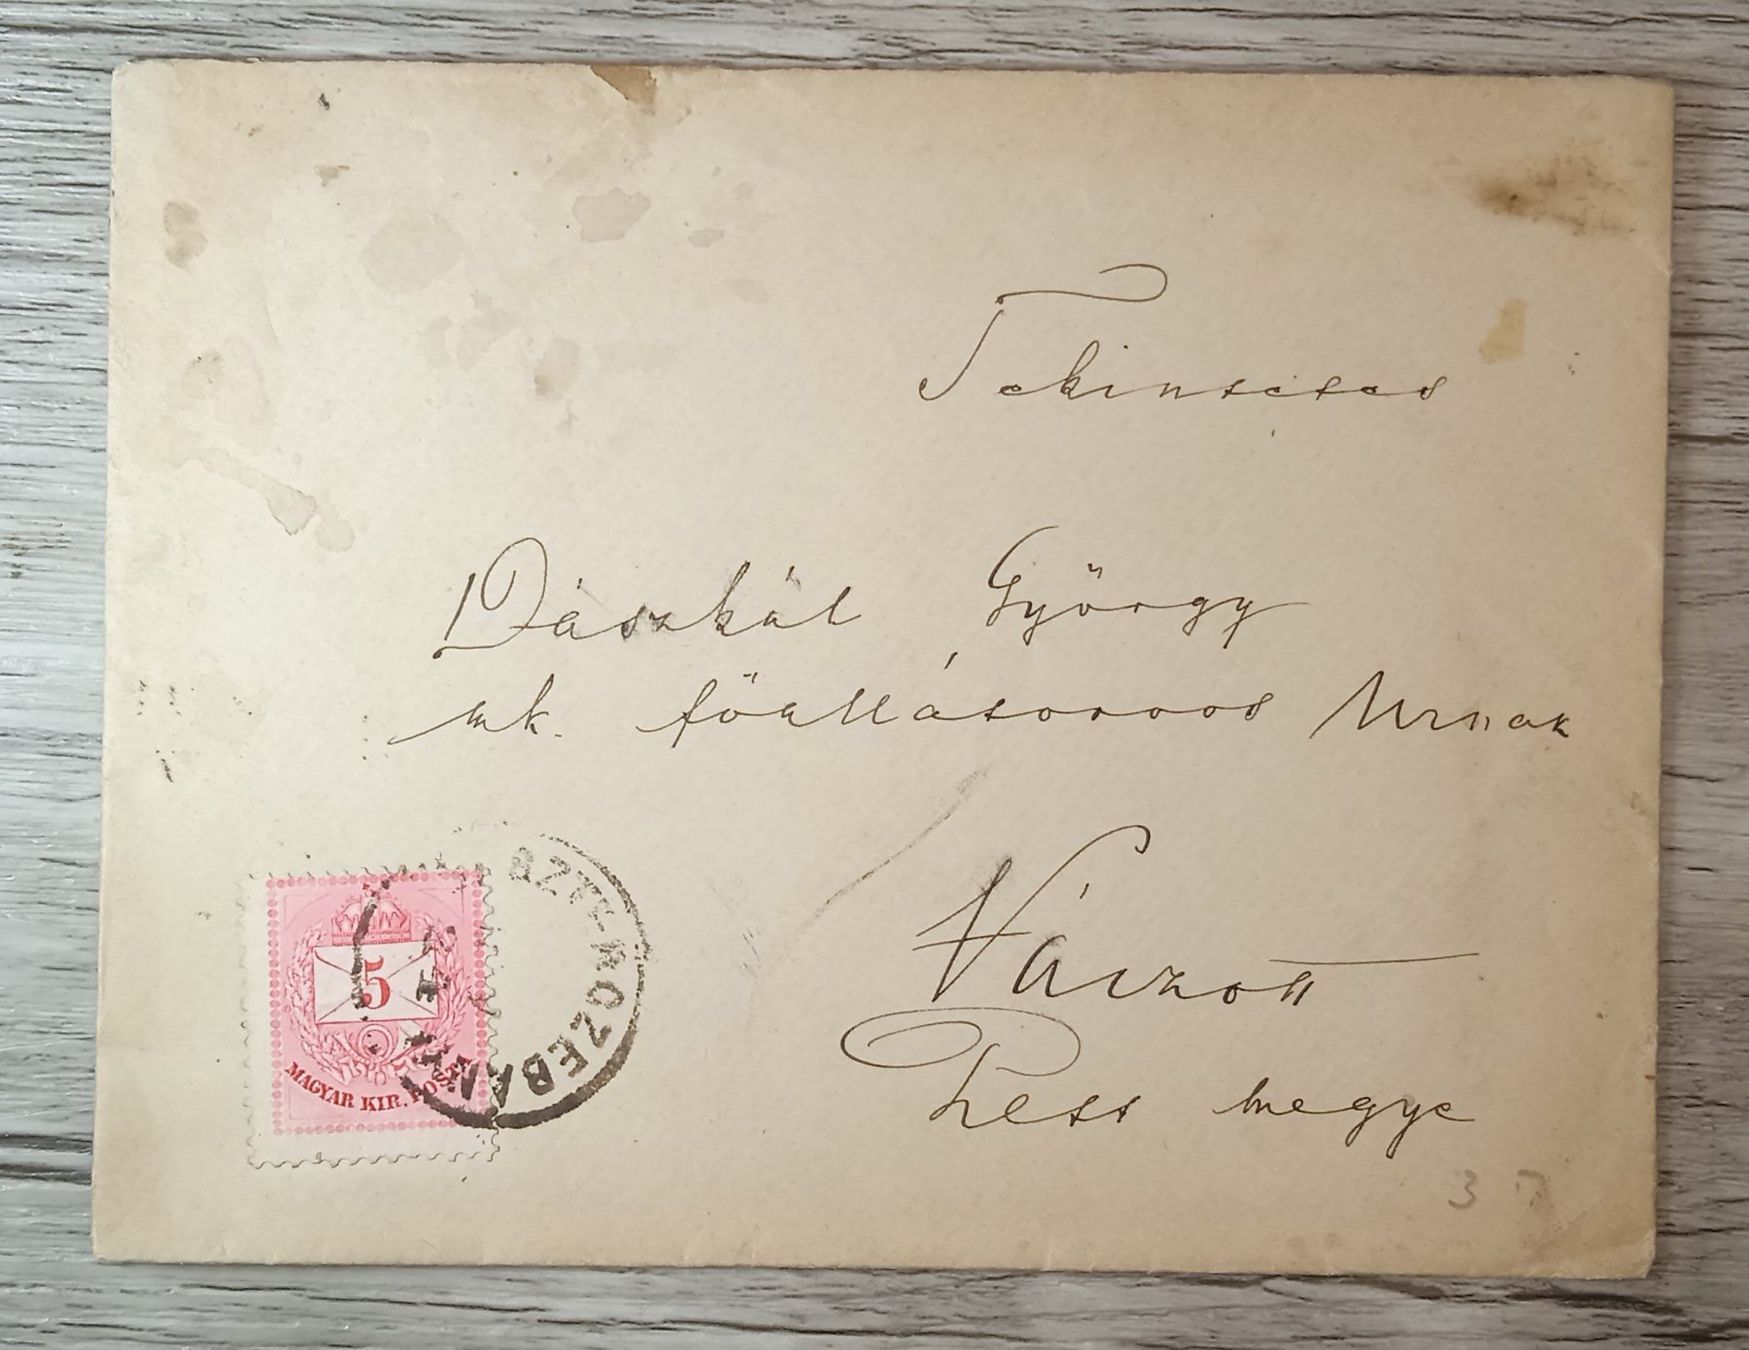 Tekintetes
Dászkál György
mk. főállatorvos Urnak
Váczott
Pest megye
5
MAGYAR KIR. POSTA
3